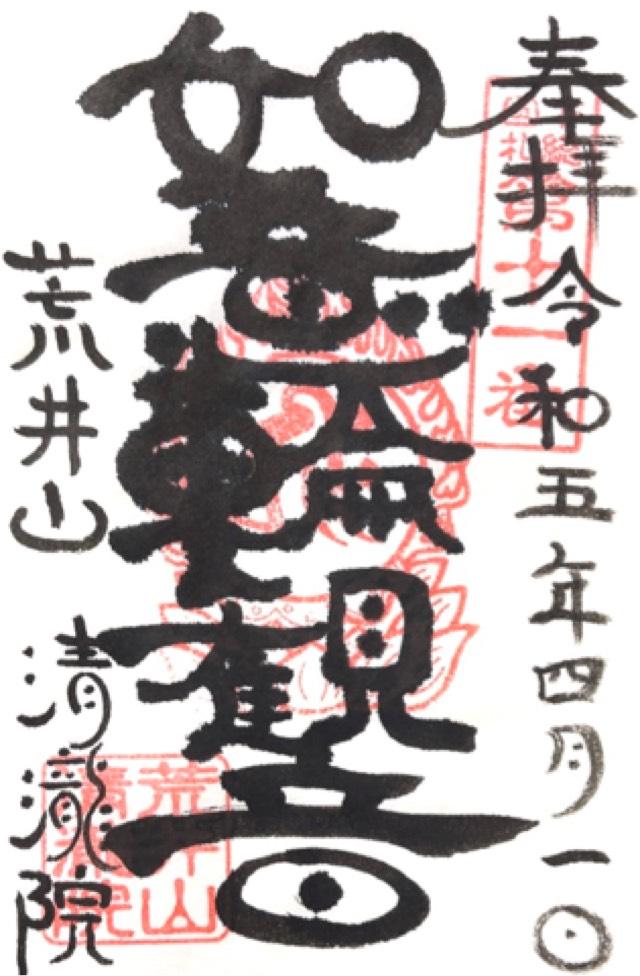 奉拝 令和五年四月一日
第十一番
如意輪観音
荒井山 清瀧院
荒井山
清瀧院